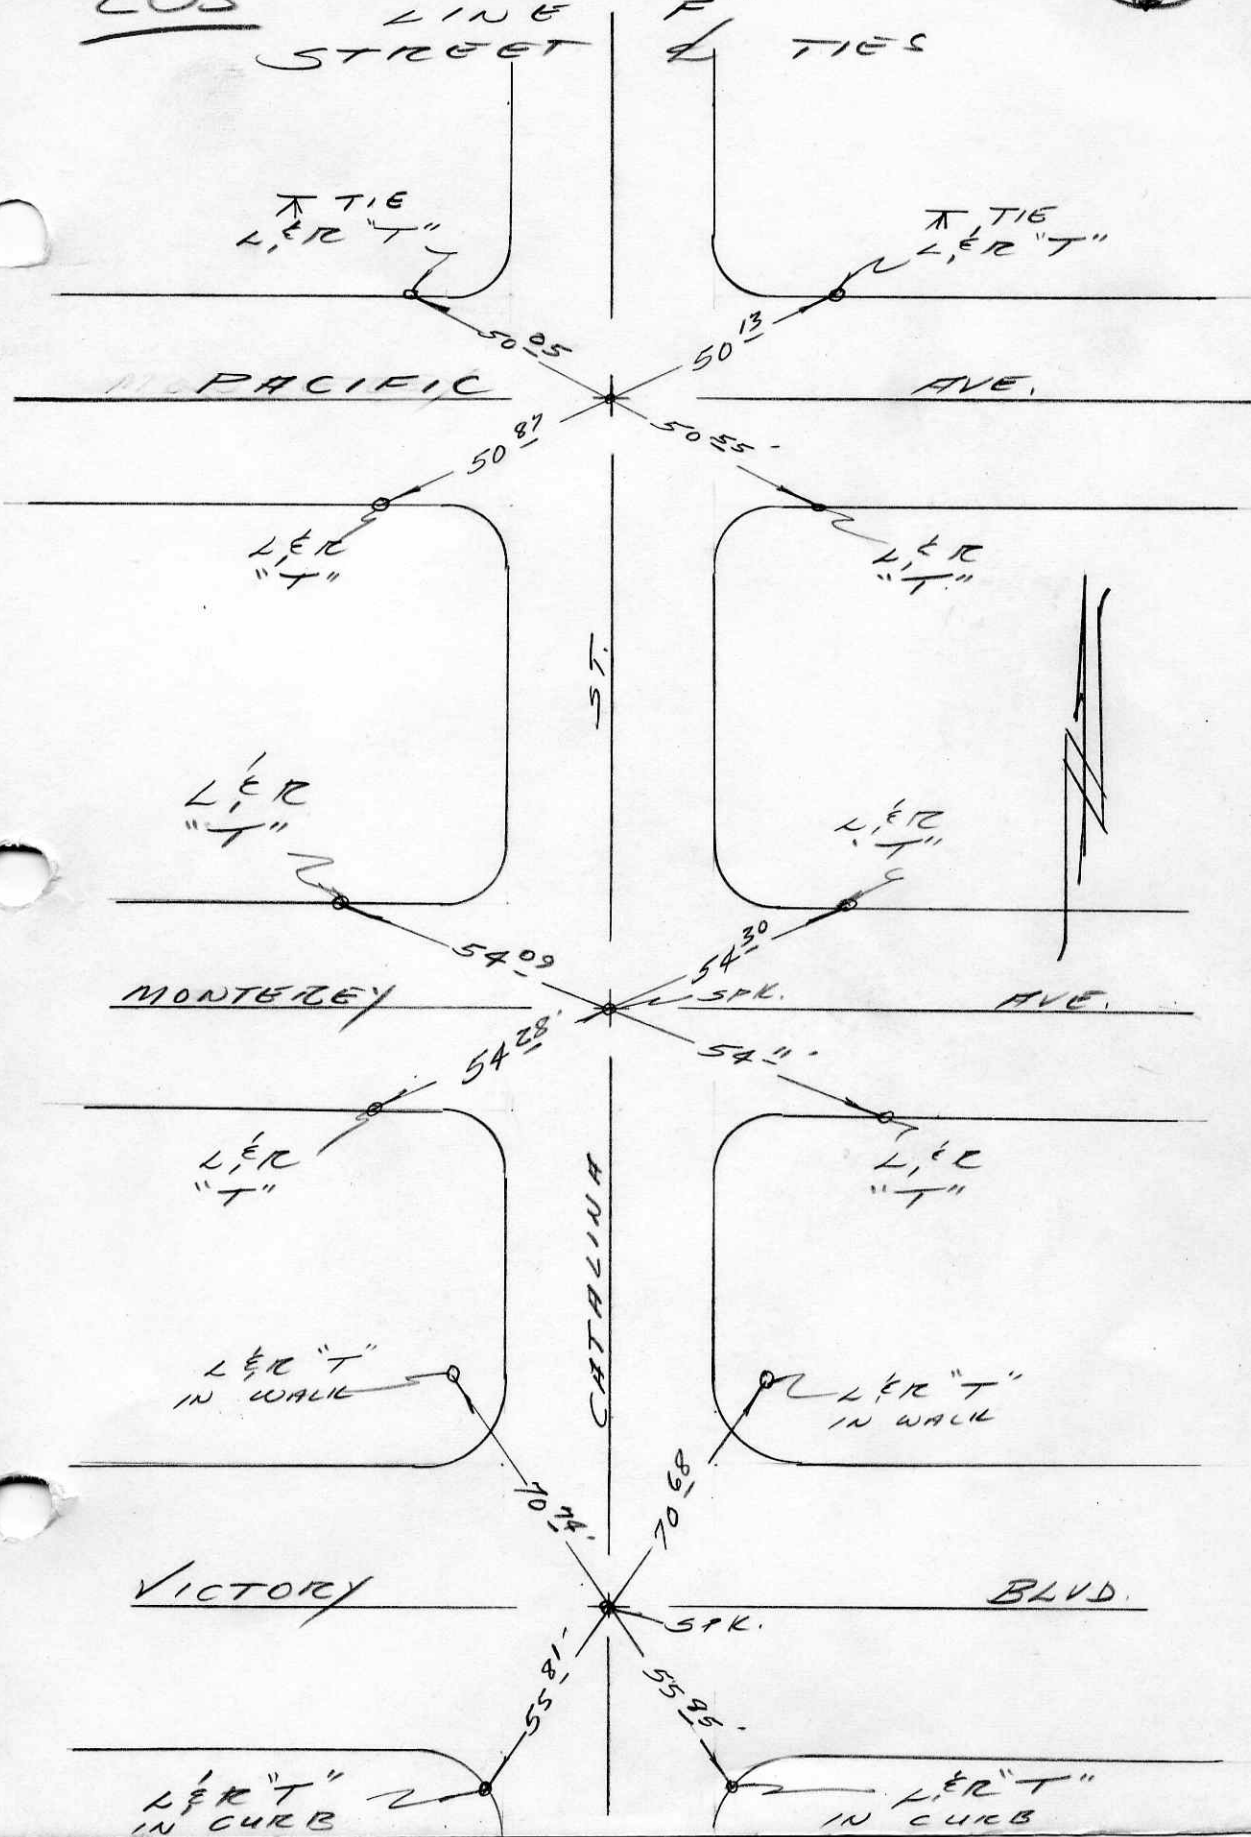 LINE
STREET ₵ TIES
TIE
L,&R "T"
TIE
L,&R "T"
50 05
50 13
PACIFIC AVE.
50 87
50 55
L,&R
"T"
L,&R
"T"
ST.
L,&R
"T"
L,&R
"T"
54 09
54 30
SPK.
MONTEREY AVE.
54 28
54 11
L,&R
"T"
L,&R
"T"
CATALINA
L&R "T"
IN WALK
L&R "T"
IN WALK
70 74
70 68
VICTORY BLVD.
SPK.
55 81
55 95
L&R "T"
IN CURB
L,&R "T"
IN CURB
N